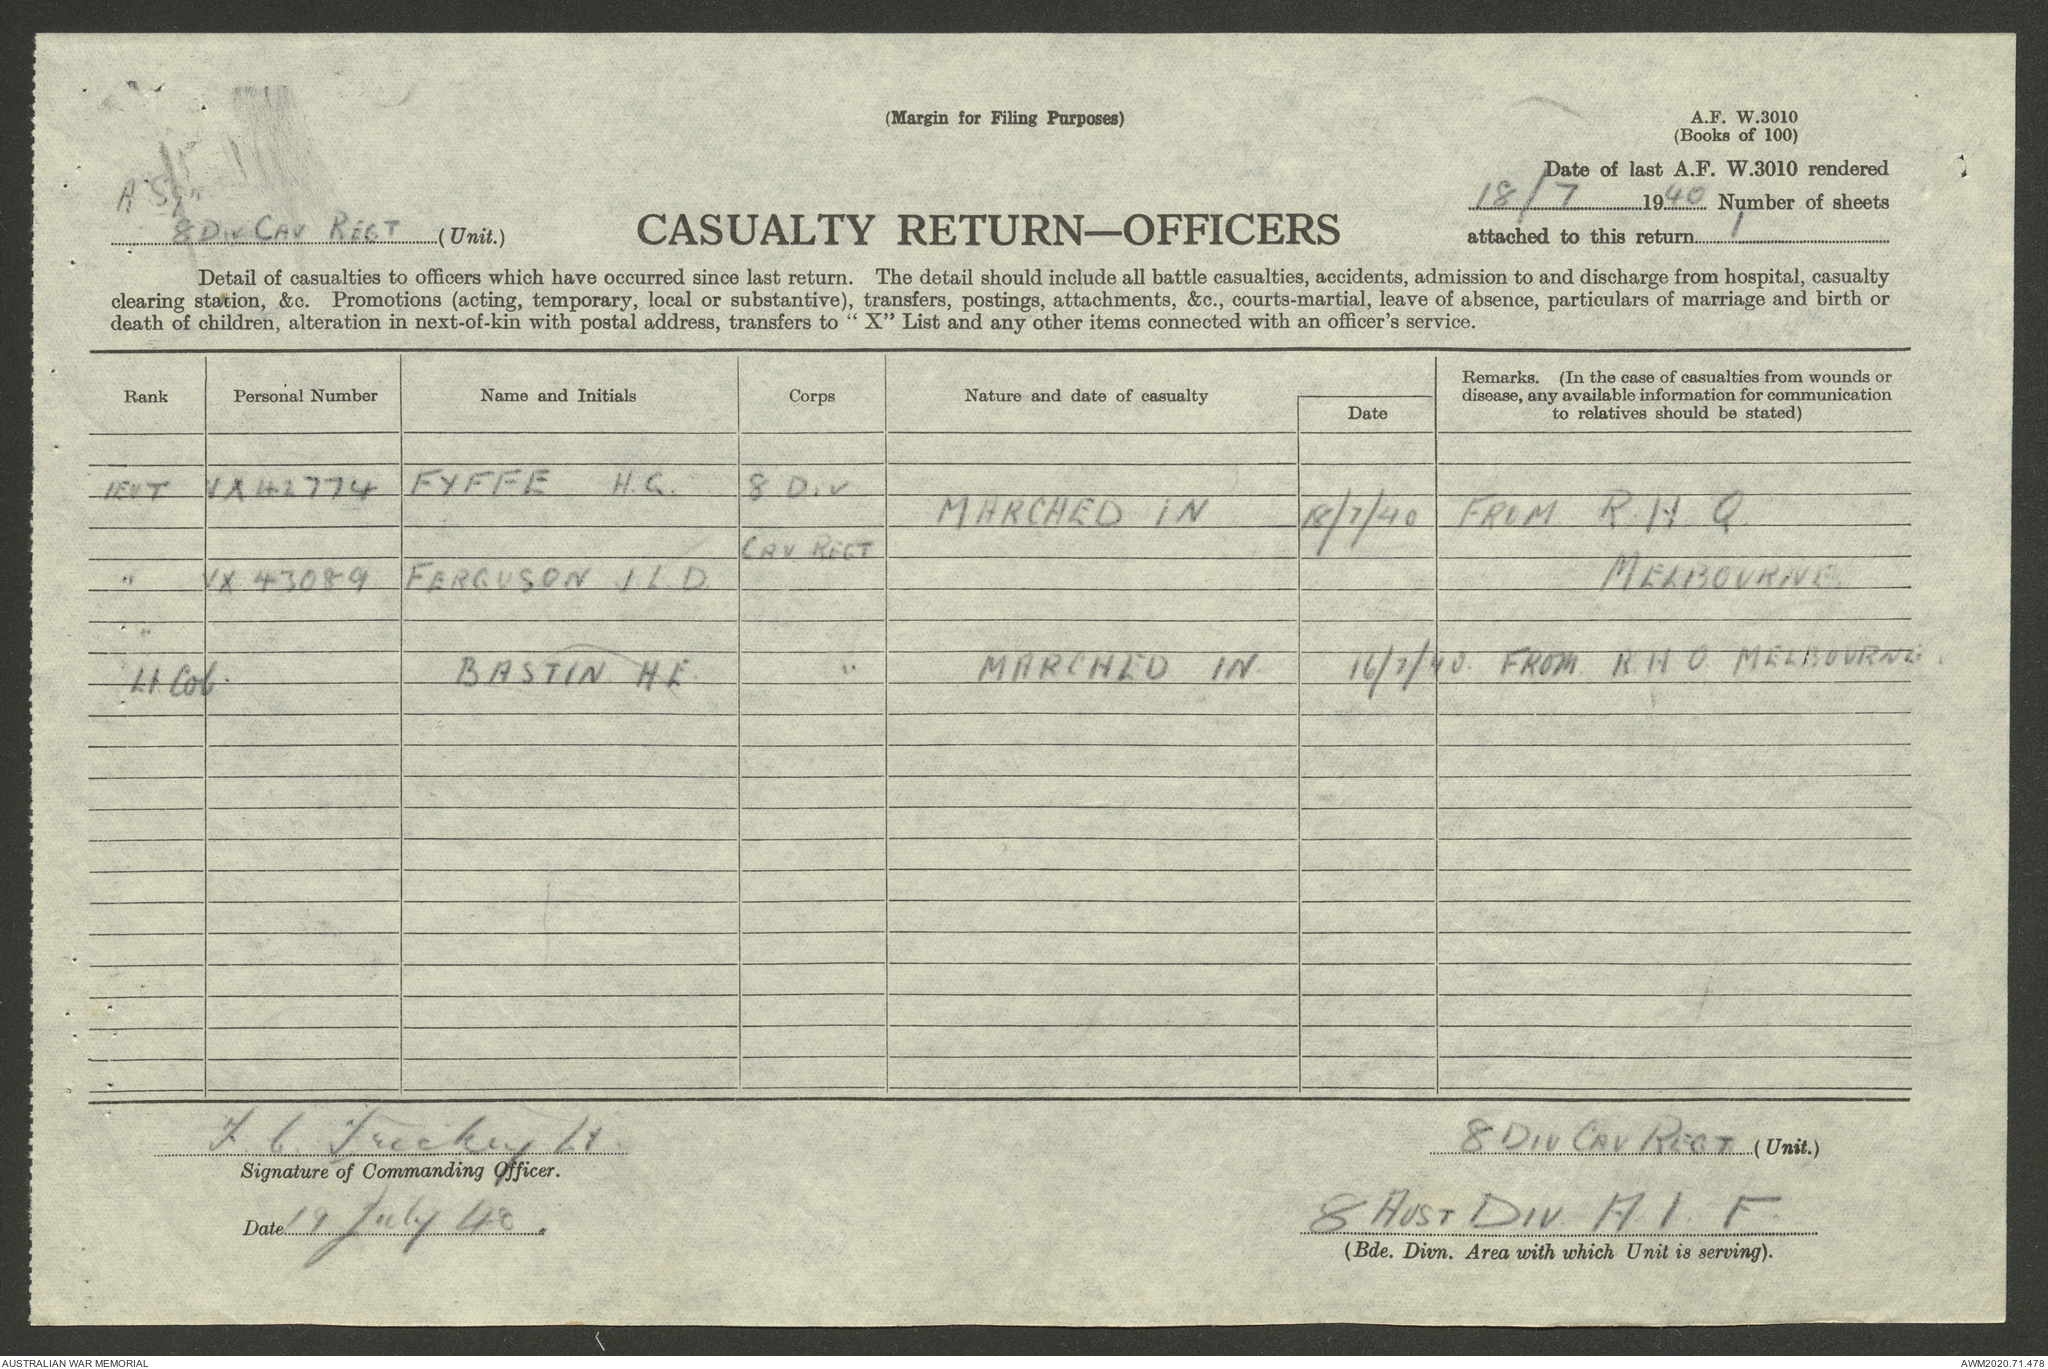 (Margin for Filing Purposes)
A.F. W.3010
(Books of 100)
Date of last A.F. W.3010 rendered
18/7 1940 Number of sheets
attached to this return 1
A Sqn
8 DIV CAV REGT (Unit.)
CASUALTY RETURN—OFFICERS
Detail of casualties to officers which have occurred since last return. The detail should include all battle casualties, accidents, admission to and discharge from hospital, casualty
clearing station, &c. Promotions (acting, temporary, local or substantive), transfers, postings, attachments, &c., courts-martial, leave of absence, particulars of marriage and birth or
death of children, alteration in next-of-kin with postal address, transfers to "X" List and any other items connected with an officer's service.
Rank Personal Number Name and Initials Corps Nature and date of casualty Date Remarks. (In the case of casualties from wounds or
disease, any available information for communication
to relatives should be stated)
IEUT VX42774 FYFFE H.G. 8 DIV
MARCHED IN 18/7/40 FROM R.H.Q.
CAV REGT
" VX43089 FERGUSON I L. D. MELBOURNE
"
Lt Col. BASTIN H.E. " MARCHED IN 16/7/40. FROM R H Q MELBOURNE.
F. C. Trickey Lt.
Signature of Commanding Officer.
8 DIV CAV REGT (Unit.)
Date 19 July 40.
8 AUST DIV. A. I. F.
(Bde. Divn. Area with which Unit is serving).
AUSTRALIAN WAR MEMORIAL
AWM2020.71.478